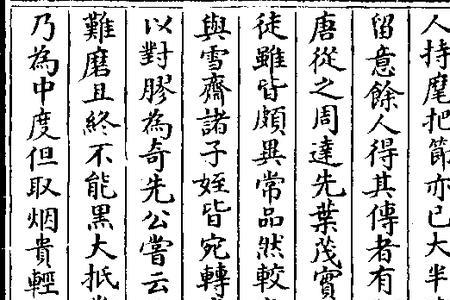 人持麾把節亦已大半
留意餘人得其傳者有
唐從之周達先葉茂實
徒雖皆頗異常品然較
與雪齋諸子姪皆宛轉
以對膠為奇先公嘗云
難磨且終不能黑大抵
乃為中度但取烟貴輕